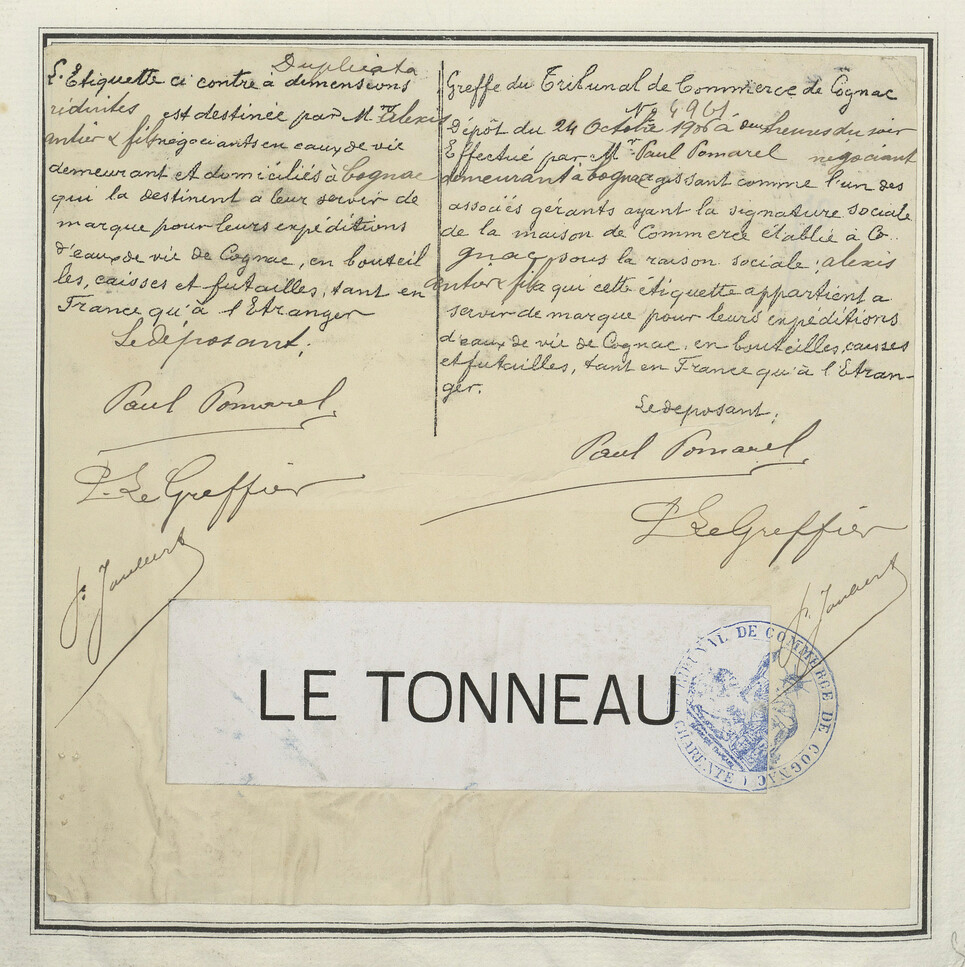 Duplicata
L'Etiquette ci contre à dimensions
réduites est destinée par M.rs Alexis
antier & fils négociants en eaux de vie
demeurant et domiciliés à Cognac
qui la destinent à leur servir de
marque pour leurs expéditions
d'eaux de vie de Cognac, en bouteil
les, caisses et futailles, tant en
France qu'à l'Etranger
Le déposant;
Paul Pomarel
P. Le Greffier
Greffe du Tribunal de Commerce de Cognac
No 4961
Dépôt du 24 Octobre 1906 à deux heures du soir
Effectué par M.r Paul Pomarel négociant
demeurant à Cognac agissant comme l'un des
associés gérants ayant la signature sociale
de la maison de Commerce établie à Co-
gnac, sous la raison sociale; alexis
antier & fils qui cette étiquette appartient a
servir de marque pour leurs expéditions
d'eaux de vie de Cognac, en bouteilles, caisses
et futailles, tant en France qu'à l'Etran-
ger.
Le deposant;
Paul Pomarel
P. Le Greffier
LE TONNEAU
TRIBUNAL DE COMMERCE DE COGNAC
(CHARENTE)